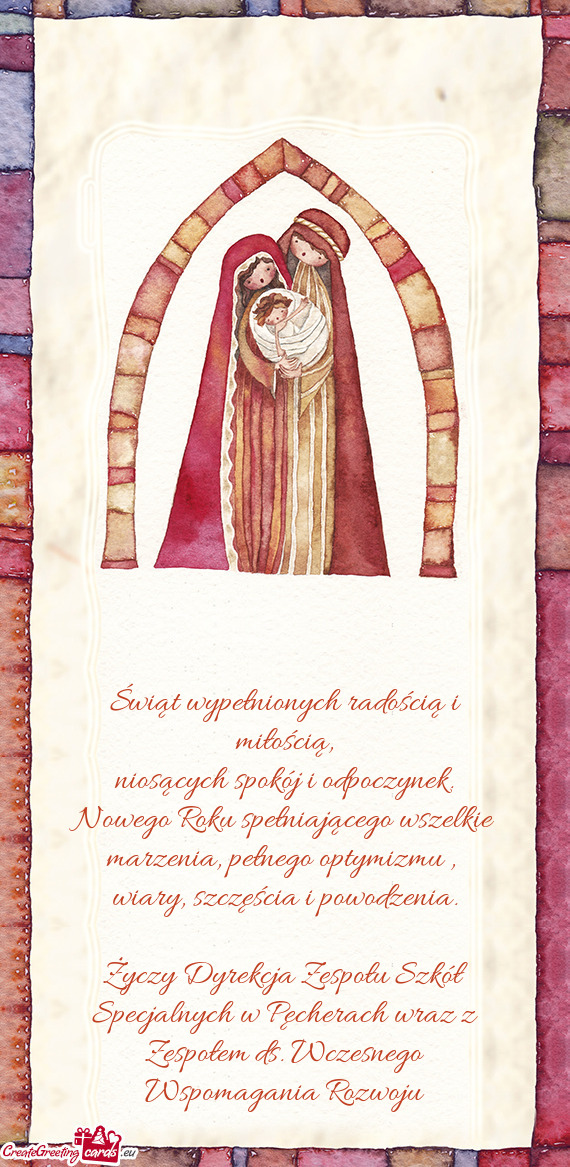 Świąt wypełnionych radością i
miłością,
niosących spokój i odpoczynek.
Nowego Roku spełniającego wszelkie
marzenia, pełnego optymizmu ,
wiary, szczęścia i powodzenia.
Życzy Dyrekcja Zespołu Szkół
Specjalnych w Pęcherach wraz z
Zespołem ds. Wczesnego
Wspomagania Rozwoju
CreateGreeting cards .eu